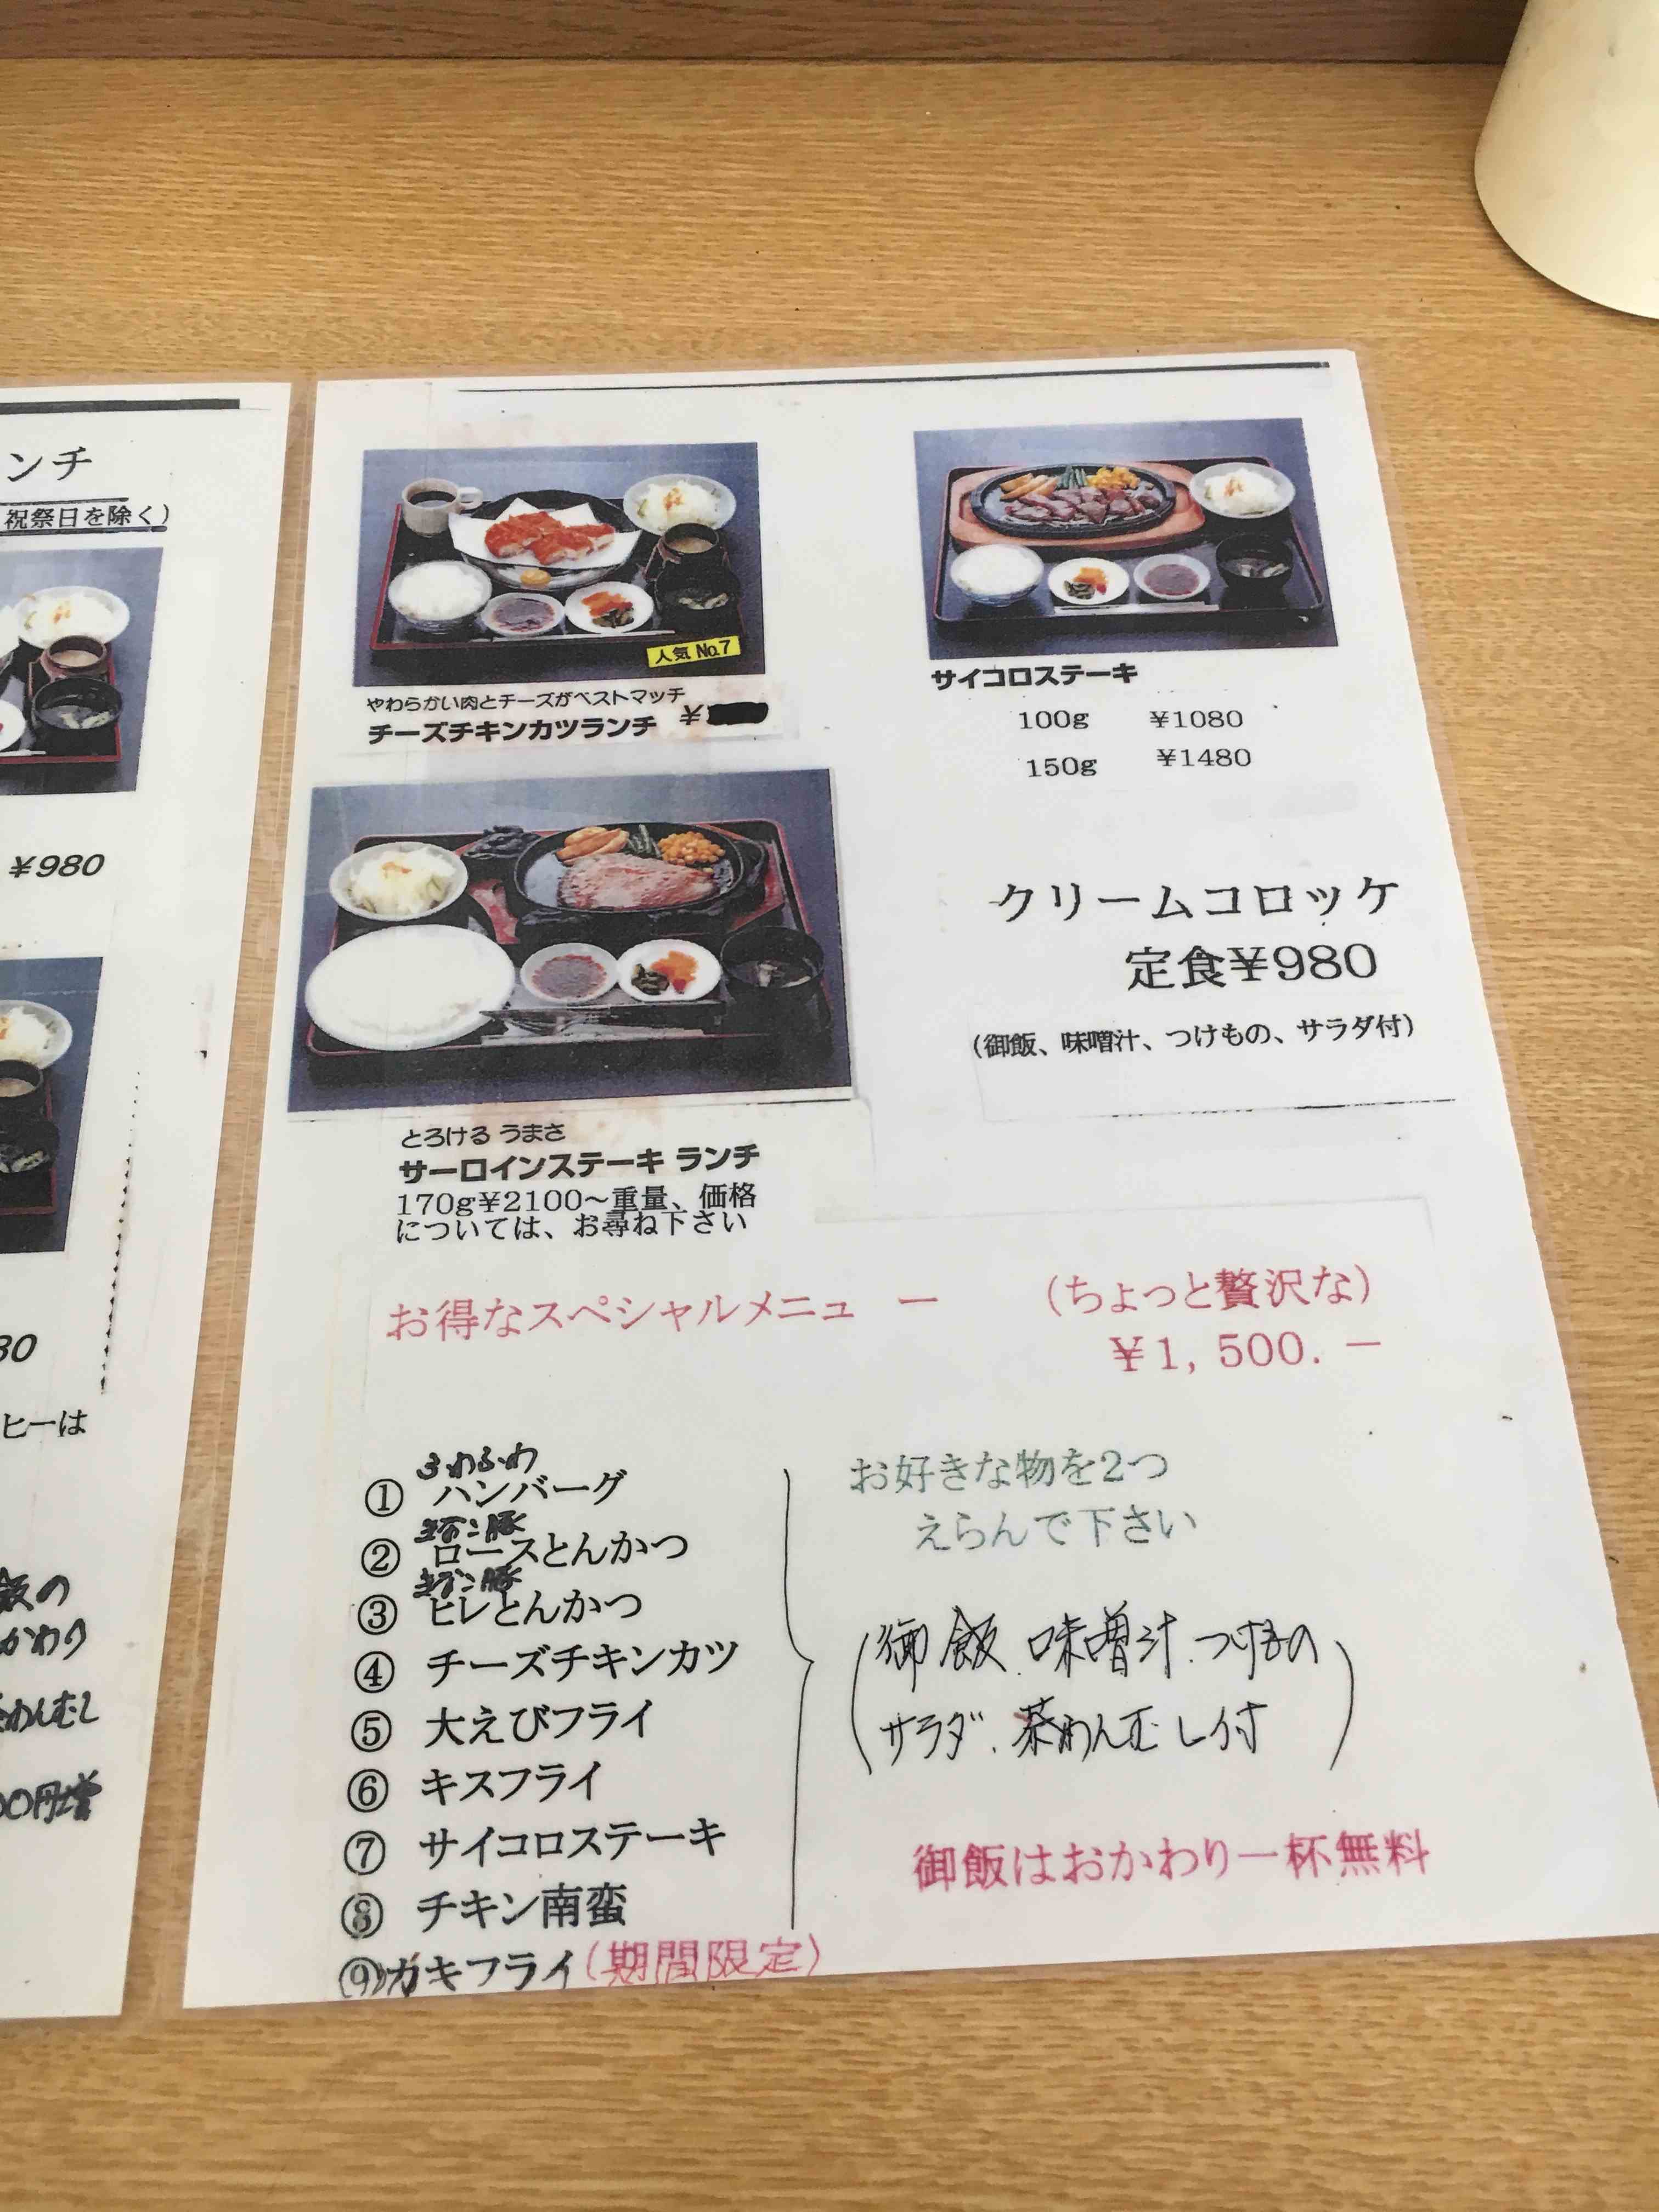 ンチ
祝祭日を除く)
¥980
80
ヒーは
飯の
かわり
わんむし
00円増
人気 No.7
やわらかい肉とチーズがベストマッチ
チーズチキンカツランチ ¥
サイコロステーキ
100g ¥1080
150g ¥1480
クリームコロッケ
定食¥980
(御飯、味噌汁、つけもの、サラダ付)
とろける うまさ
サーロインステーキ ランチ
170g¥2100～重量、価格
については、お尋ね下さい
お得なスペシャルメニュー (ちょっと贅沢な)
¥1,500.－
ふわふわ
① ハンバーグ
豚
② ロースとんかつ
豚
③ ヒレとんかつ
④ チーズチキンカツ
⑤ 大えびフライ
⑥ キスフライ
⑦ サイコロステーキ
⑧ チキン南蛮
⑨カキフライ(期間限定)
お好きな物を2つ
えらんで下さい
(御飯、味噌汁、つけもの
サラダ、茶わんむし付)
御飯はおかわり一杯無料